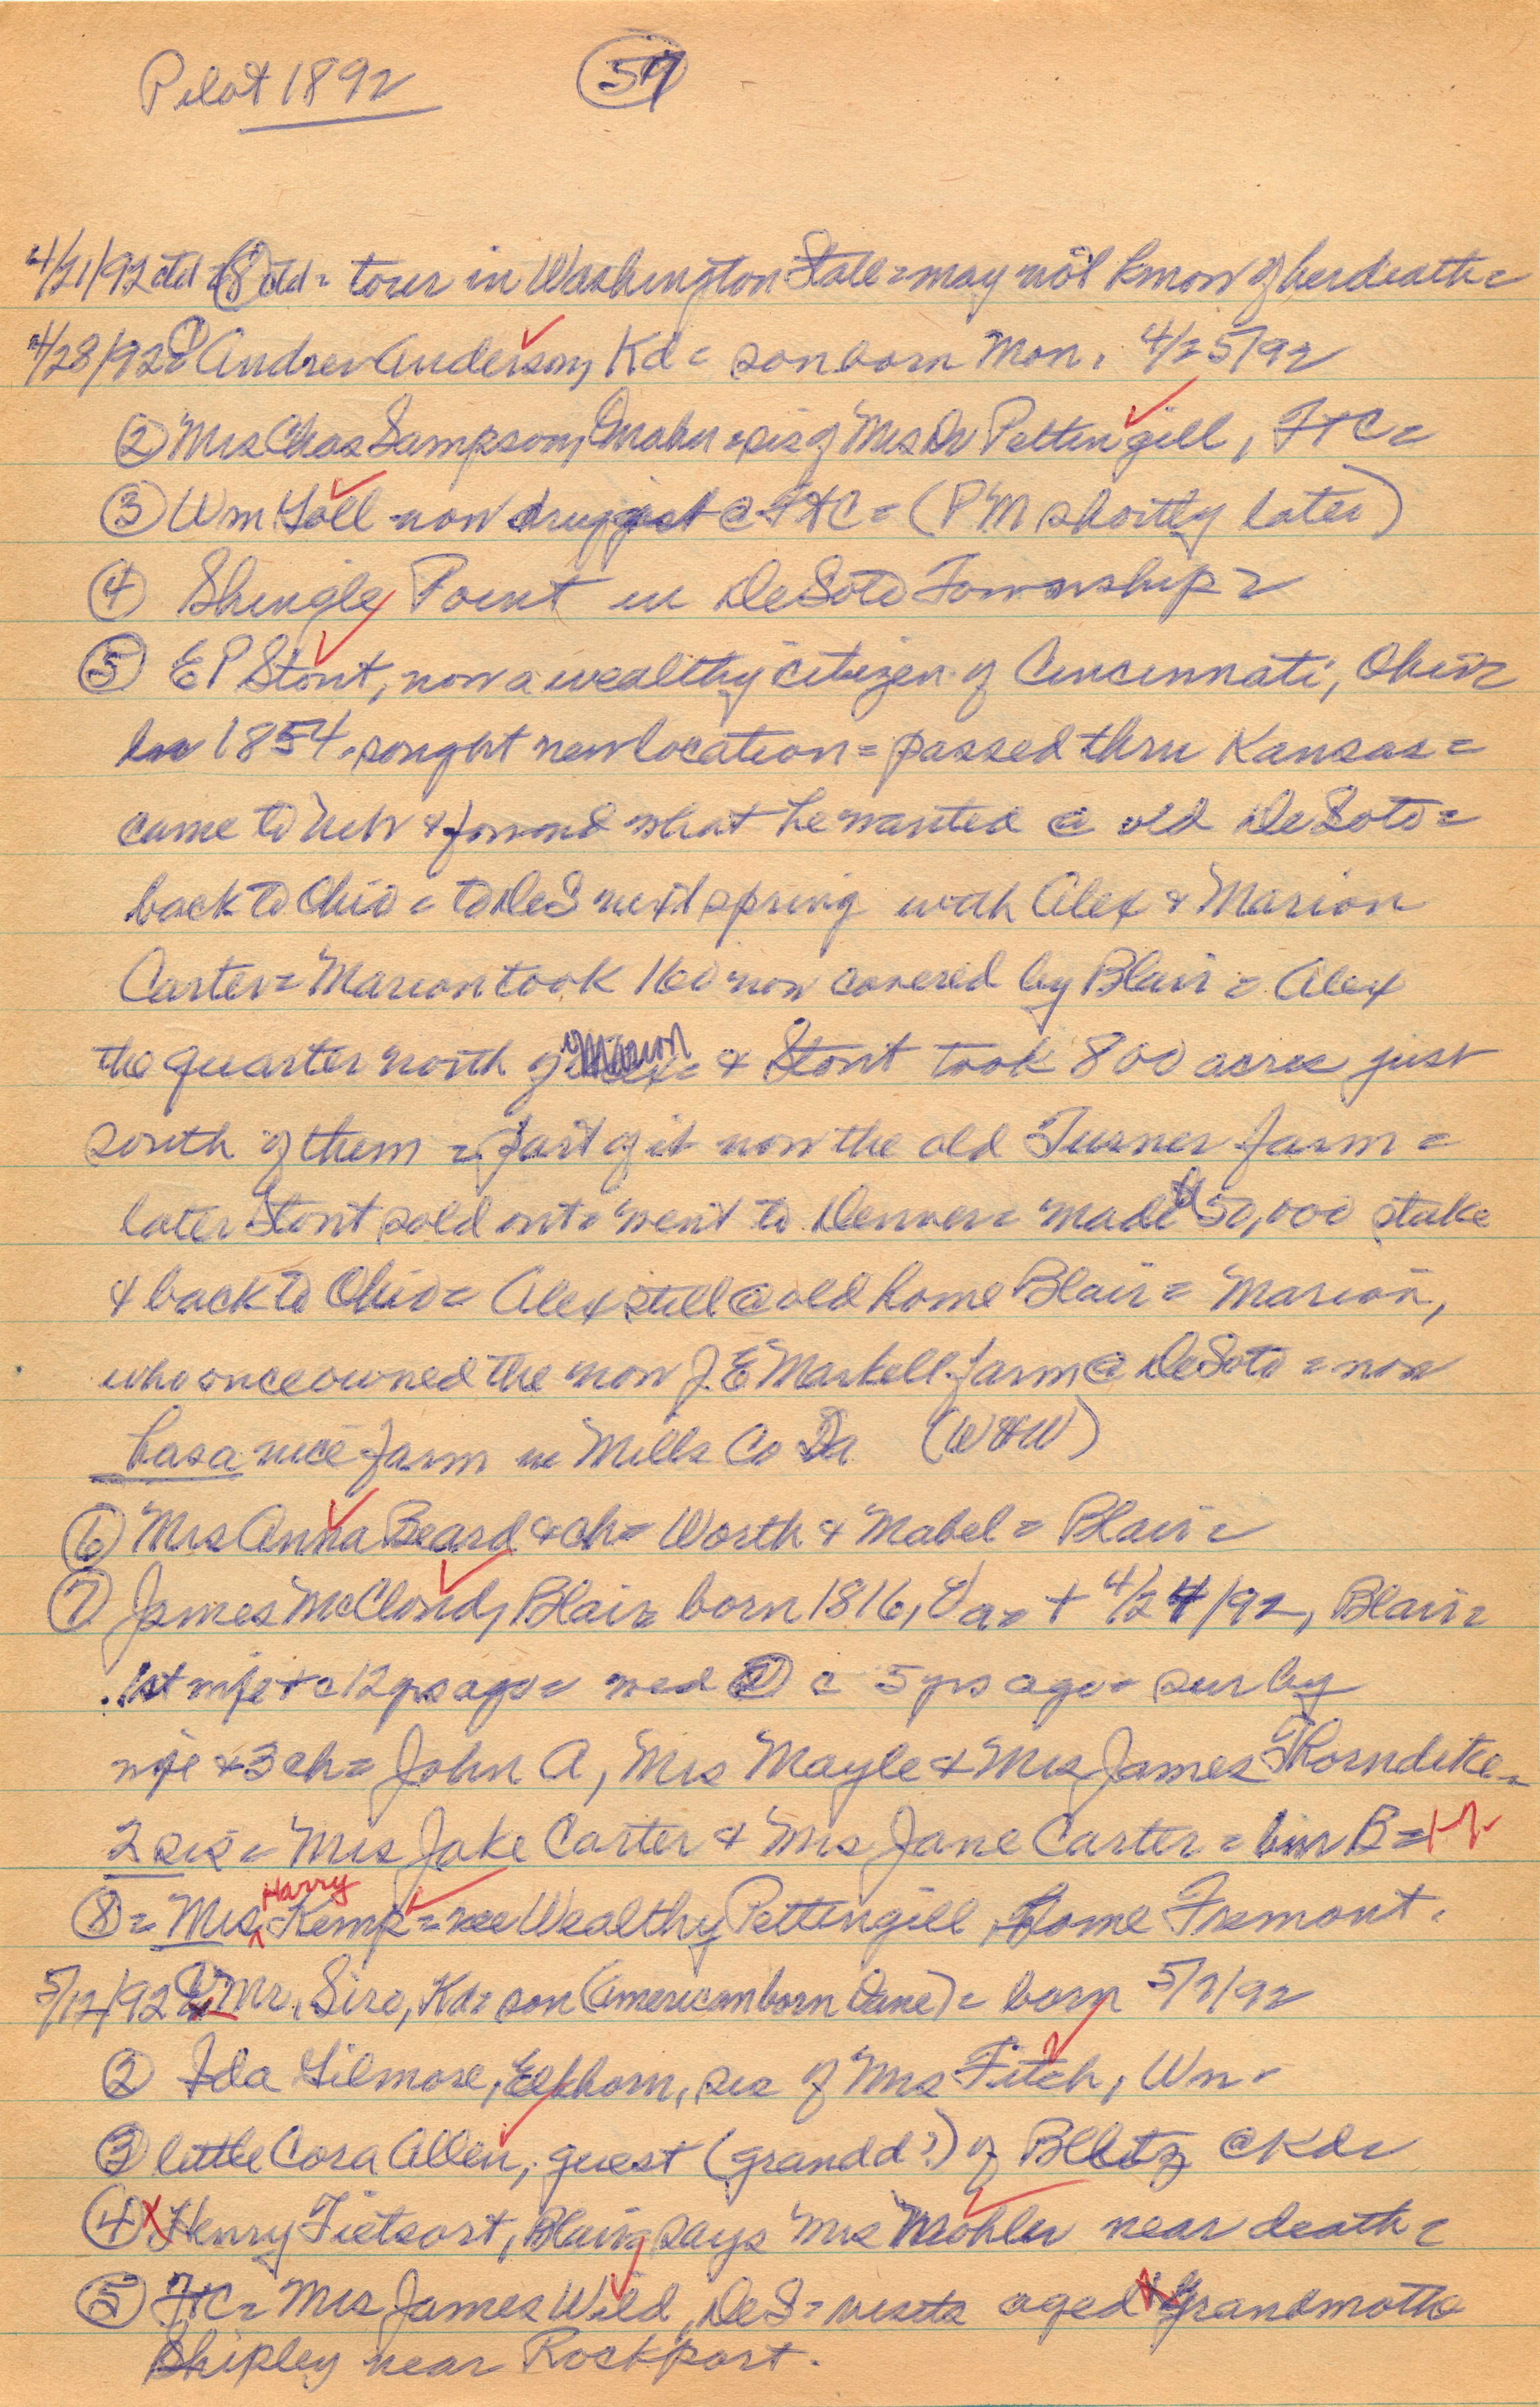 Pilot 1892 57
4/21/92 ctd (8) ctd = tour in Washington State = may not know of her death =
4/28/92 = (1) Andrew Anderson, Kd = son born Mon. 4/25/92
(2) Mrs Chas Sampson, Omaha = sis of Mrs Dr Pettengill, FtC =
(3) Wm Goll now druggist @ FtC = (PM shortly later)
(4) Shingle Point in DeSoto Township =
(5) E P Stout, now a wealthy citizen of Cincinnati, Ohio =
In 1854 sought new location = passed thru Kansas =
came to Neb & found what he wanted @ old DeSoto =
back to Ohio = to DeS next spring with Alex & Marion
Carter = Marion took 160 now covered by Blair = Alex
the quarter north of Marion = & Stout took 800 acres just
south of them = part of it now the old Turner farm =
later Stout sold out = went to Denver = made $50,000 stake
& back to Ohio = Alex still @ old home Blair = Marion,
who once owned the now J. E. Markell farm @ DeSoto = now
has a nice farm in Mills Co Ia (W&W)
(6) Mrs Anna Beard & ch = Worth & Mabel = Blair =
(7) James McCloud, Blair = born 1816, Va = + 4/24/92, Blair =
1st wife + c 12 yrs ago = wed (2) c 5 yrs ago = sur by
wife & 3 ch = John A, Mrs Mayle & Mrs James Thorndike =
2 sis = Mrs Jake Carter & Mrs Jane Carter = bur B =
(8) = Mrs Harry Kemp = nee Wealthy Pettengill, home Fremont.
5/12/92 (1) Mr. Sire, Kd = son (American born Dane) = born 5/7/92
(2) Ida Gilmore, Elkhorn, sis of Mrs Fitch, Wn =
(3) little Cora Allen, guest (grandd?) of B Lutz @ Kd =
(4) x Henry Tietsort, Blair, says Mrs Mohler near death =
(5) FtC = Mrs James Wild, DeS = visits aged Grandmother
Shipley near Rockport.